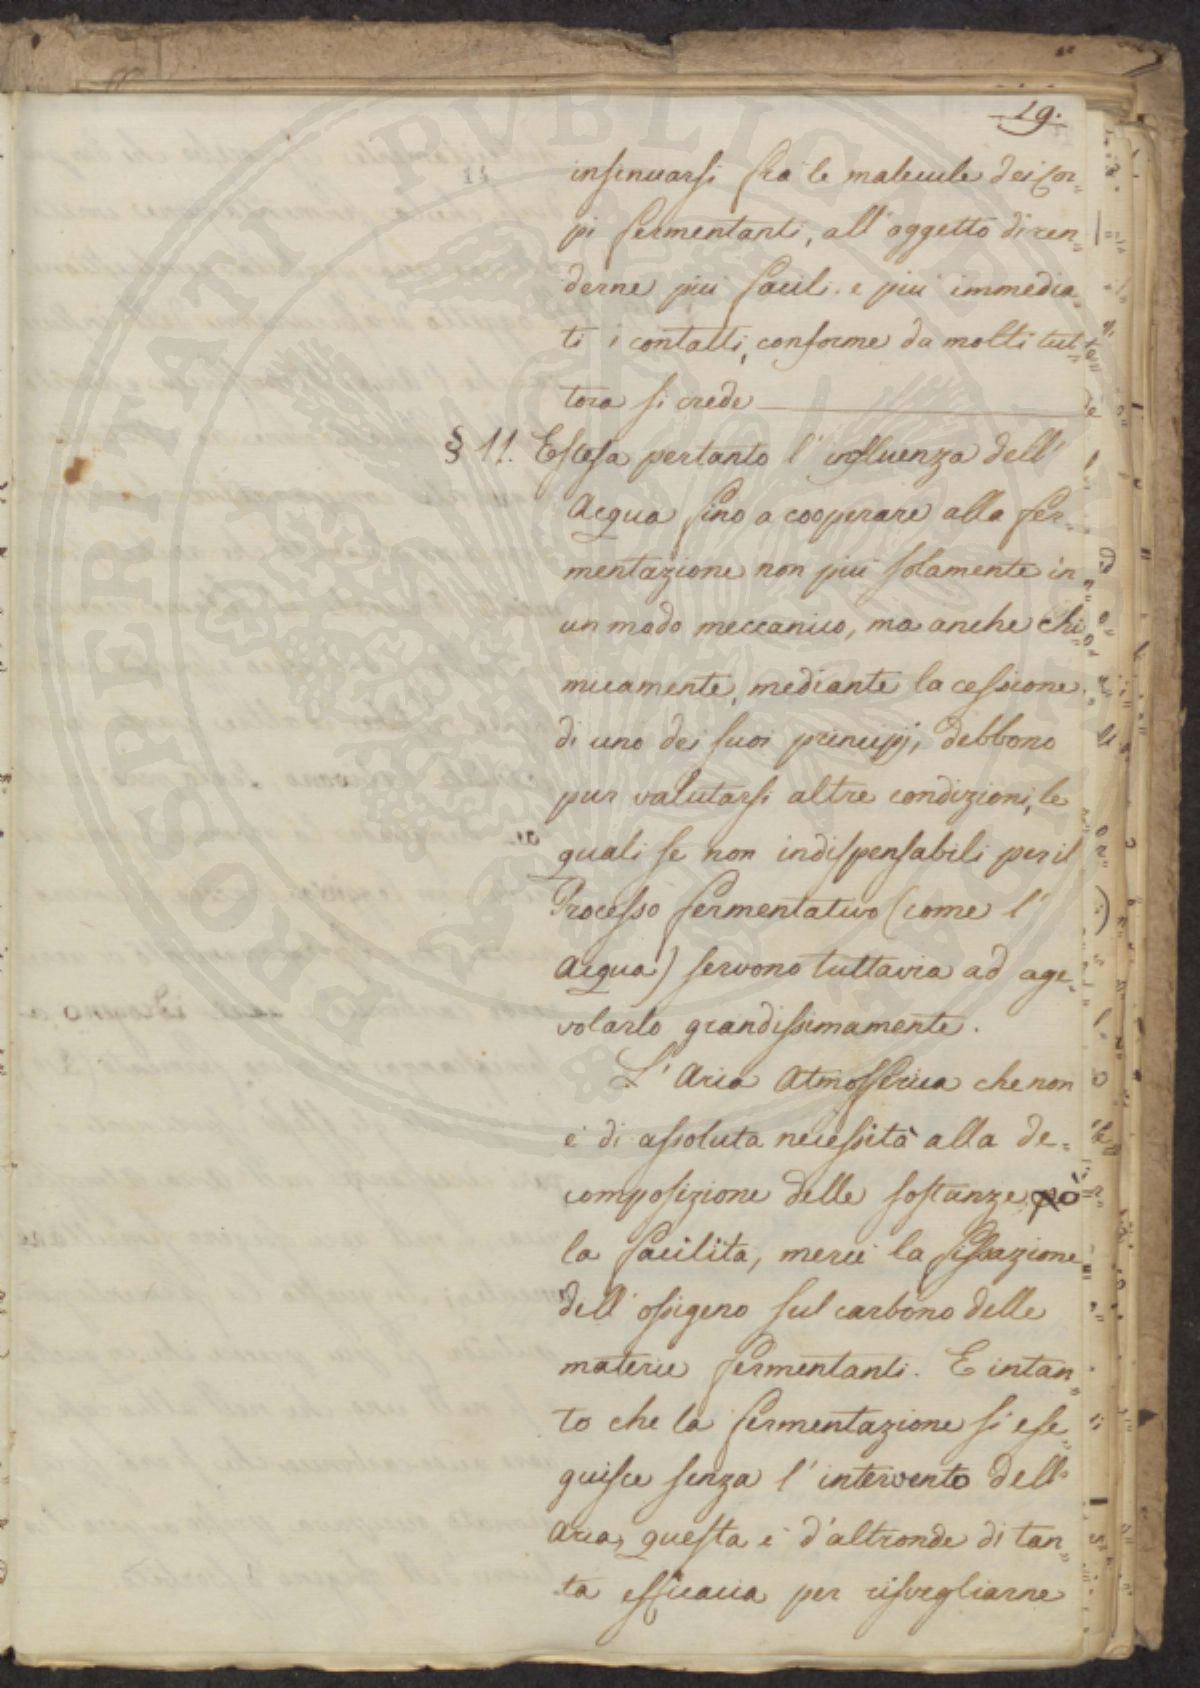 19.
insinuarsi fra le malecule dei Cor=
pi fermentanti, all'oggetto di ren=
derne più facili e più immedia=
ti i contatti, conforme da molti tut=
tora si crede
§ 11. Estesa pertanto l'influenza dell'
Acqua fino a cooperare alla fer=
mentazione non più solamente in
un modo meccanico, ma anche chi=
micamente, mediante la cessione
di uno dei suoi principj, debbono
pur valutarsi altre condizioni, le
quali se non indispensabili per il
Processo fermentativo (come l'
Acqua) servono tuttavia ad age=
volarlo grandissimamente.
L'Aria Atmosferica che non
è di assoluta necessità alla de=
composizione delle sostanze, può
la facilita, mercè la fissazione
dell'ossigeno sul carbono delle
materie fermentanti. E intan=
to che la fermentazione si ese=
guisce senza l'intervento dell'
Aria, questa è d'altronde di tan=
ta efficacia per risvegliarne
PROSPERITATI PVBLICAE